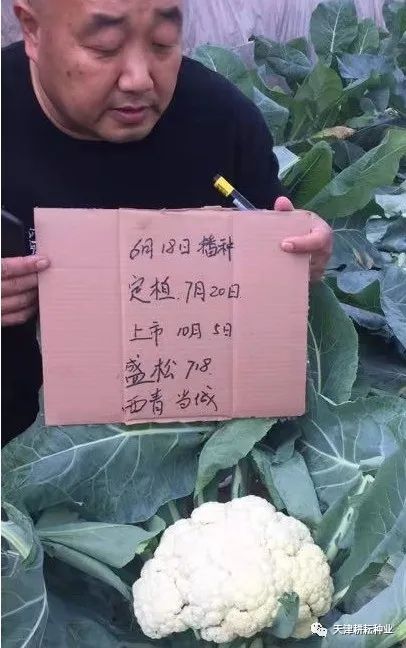 6月18日播种
定植.7月20日
上市 10月5日
盛松 718
西青 当城
天津耕耘种业